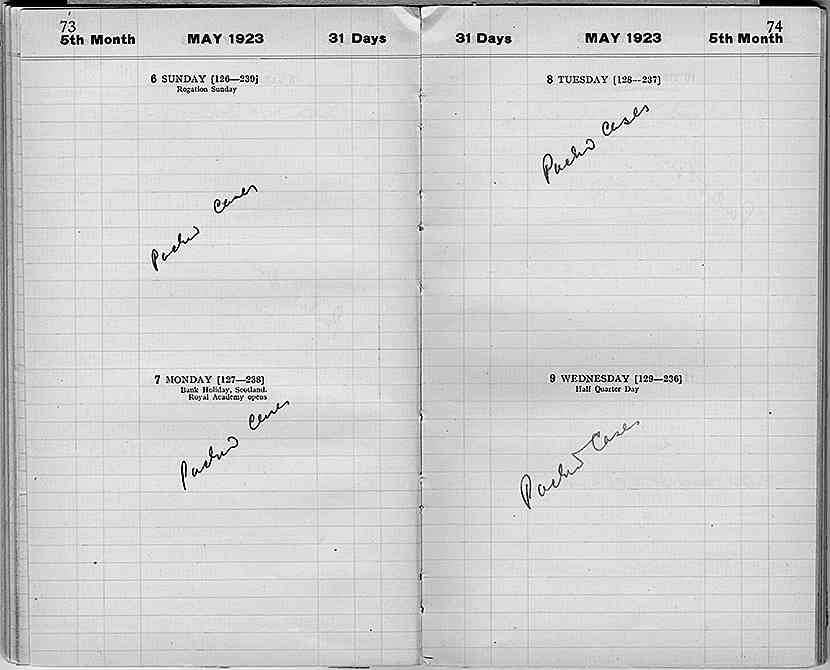 73
5th Month MAY 1923 31 Days
6 SUNDAY [126—239]
Rogation Sunday
Packed cases
7 MONDAY [127—238]
Bank Holiday, Scotland.
Royal Academy opens
Packed cases
74
31 Days MAY 1923 5th Month
8 TUESDAY [128—237]
Packed cases
9 WEDNESDAY [129—236]
Half Quarter Day
Packed Cases